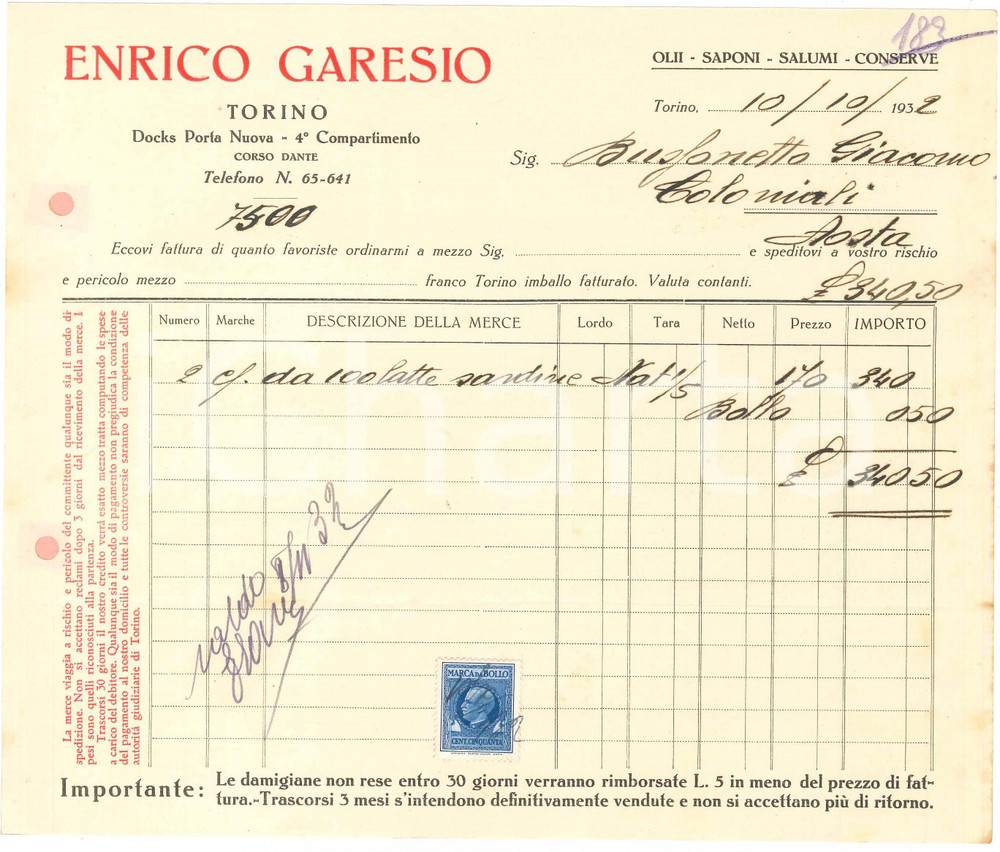 183
ENRICO GARESIO
OLII - SAPONI - SALUMI - CONSERVE
TORINO
Docks Porta Nuova - 4° Compartimento
CORSO DANTE
Telefono N. 65-641
Torino, 10/10/1932
Sig. Giacomo
Coloniali
Aosta
7500
Eccovi fattura di quanto favoriste ordinarmi a mezzo Sig. e speditovi a vostro rischio
e pericolo mezzo franco Torino imballo fatturato. Valuta contanti.
£ 340,50
Numero Marche DESCRIZIONE DELLA MERCE Lordo Tara Netto Prezzo IMPORTO
2 cf. da 100 latte sardine Nat 1/5 170 340
Bollo 050
£ 34050
saldo 8/11 32
MARCA DA BOLLO
CENT. CINQUANTA
La merce viaggia a rischio e pericolo del committente qualunque sia il modo di
spedizione. Non si accettano reclami dopo 3 giorni dal ricevimento della merce. I
pesi sono quelli riconosciuti alla partenza.
Trascorsi 30 giorni il nostro credito verrà esatto mezzo tratta computando le spese
a carico del debitore. Qualunque sia il modo di pagamento non pregiudica la condizione
del pagamento al nostro domicilio e tutte le controversie saranno di competenza delle
autorità giudiziarie di Torino.
Importante: Le damigiane non rese entro 30 giorni verranno rimborsate L. 5 in meno del prezzo di fat-
tura.-Trascorsi 3 mesi s'intendono definitivamente vendute e non si accettano più di ritorno.